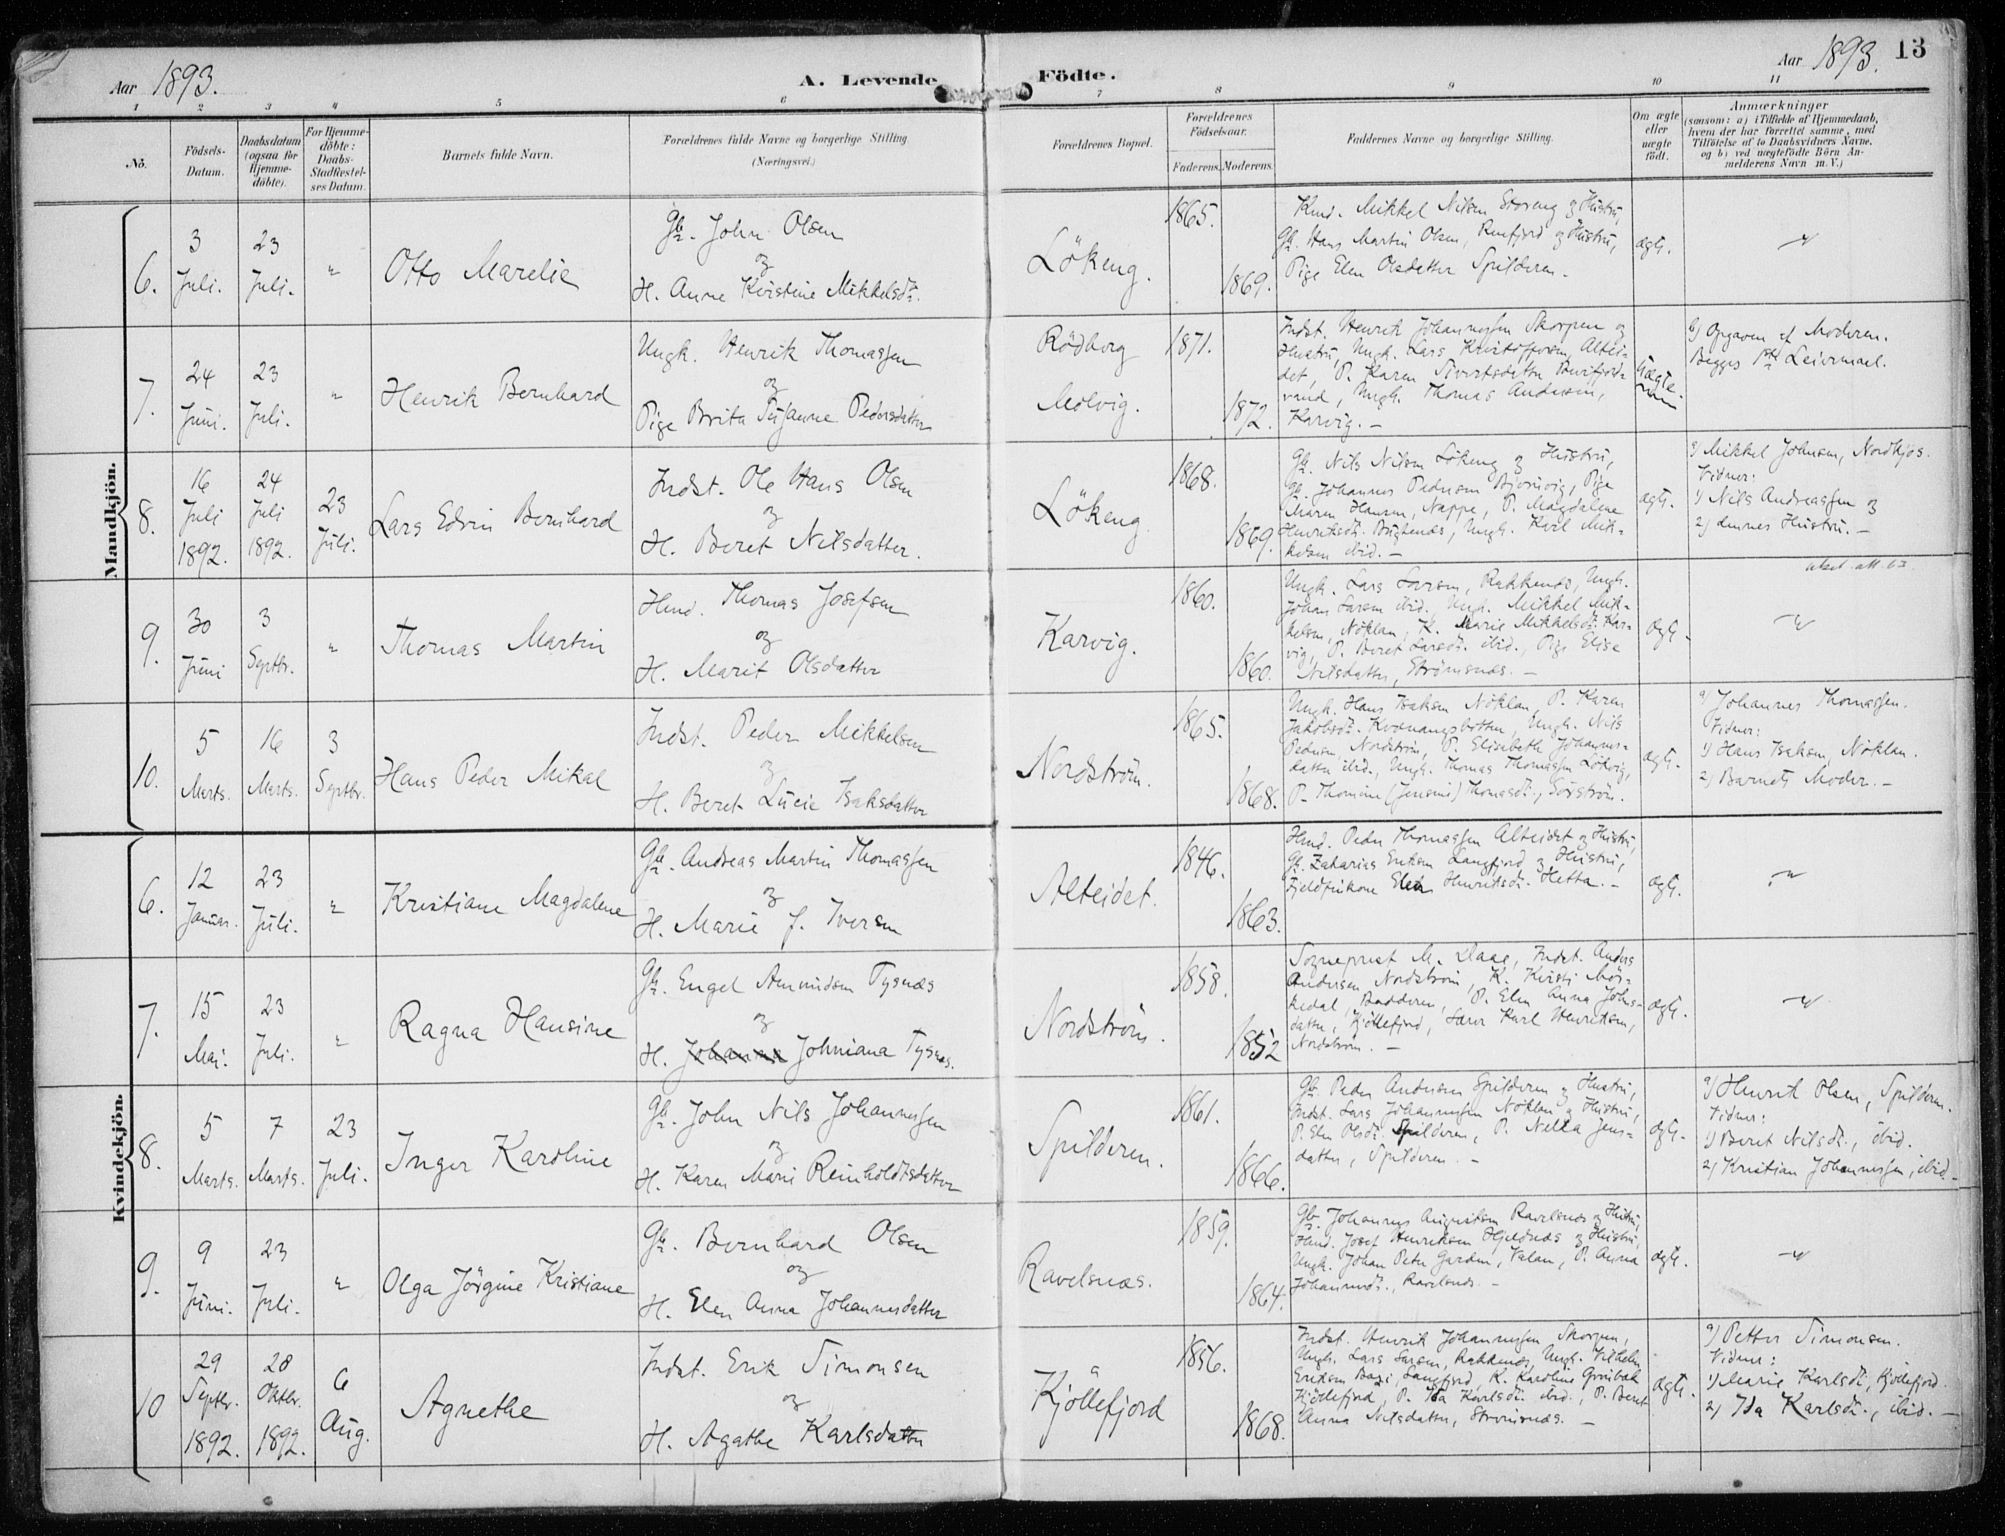 Aar 1893.
A. Levende Födte.
Aar 1893. 13
1 2 3 4 5 6 7 8 9 10 11
No. Födsels-Datum. Daabsdatum (ogsaa for Hjemme-döbte). For Hjemme-döbte: Daabs-Stadfæstel-ses Datum. Barnets fulde Navn. Forældrenes fulde Navne og borgerlige Stilling (Næringsvei.) Forældrenes Bopæl. Forældrenes Födselsaar. Faderens. Moderens. Faddernes Navne og borgerlige Stilling. Om ægte eller uægte födt. Anmærkninger
(saasom: a) i Tilfælde af Hjemmedaab, hvem der har forrettet samme, med Tilföielse af to Daabsvidners Navne, og b) ved uægtefödte Börn An-melderens Navn m.V.)
Mandkjön.
6.
3 Juli.
23 Juli.
"
Otto Marelie
Gb. John Olsen
og
H. Anne Kristine Mikkelsdr.
Lökeng.
1865.
1869.
Kmd. Mikkel Nilsen Storeng og Hustru,
Gb. Hans Martin Olsen, Rusfjord og Hustru,
Pige Elen Olsdatter Spilderen. -
ægt.
"
7.
24 Juni.
23 Juli.
"
Henrik Bernhard
Ungk. Henrik Thomassen
og
Pige Brita Susanne Pedersdatter
Rödberg
Molvig.
1871.
1872.
Indst. Henrik Johannessen Skorpen og
Hustru, Ungk. Lars Kristoffersen, Altei-
det, P. Karen Sivertsdatter Burfjord-
vand, Ungk. Thomas Andersen,
Karvig. -
Uægte.
b) Opgaven af Moderen.
Begges 1ste Leiermaal.
8.
16 Juli 1892.
24 Juli 1892.
23 Juli.
Lars Edvin Bernhard
Indst. Ole Hans Olsen
og
H. Beret Nilsdatter.
Lökeng
1868.
1869.
Gb. Nils Nilsen Lökeng og Hustru,
Gb. Johannes Pedersen Bjørnvig, Pige
Maren Hansen, Nappe, P. Magdalene
Henriksdr. Ungk. Karl Mik-
kelsen ibid. -
ægt.
a) Mikkel Johnsen, Nordkjos.
Vidner:
1) Nils Andreassen og
2) dennes Hustru. -
9.
30 Juni
3 Septbr.
"
Thomas Martin
Hmd. Thomas Josefsen
og
H. Marit Olsdatter
Karvig.
1860.
1860.
Ungk. Lars Larsen, Rakkenes, Ungk.
Johan Larsen ibid. Ungk. Mikkel Mik-
kelsen, Nöklan, K. Marie Mikkelsdr. Kar-
vig, P. Beret Larsdr. ibid., Pige Elise
Nilsdatter, Strömsnæs. -
ægt.
"
10.
5 Marts.
16 Marts.
3 Septbr.
Hans Peder Mikal
Indst. Peder Mikkelsen
og
H. Beret Lucie Isaksdatter
Nordström.
1865.
1868.
Ungk. Hans Isaksen Nöklan, P. Karen
Jakobsdr. Kvænangsbotten, Ungk. Nils
Pedersen, Nordström, P. Elisabeth Johannes-
datter ibid., Ungk. Thomas Thomassen Lökvig,
P. Thomine (Jensine) Thomasdr., Sörström.
ægt.
a) Johannes Thomassen.
Vidner:
1) Hans Isaksen, Nöklan.
2) Barnets Moder. -
Kvindekjön.
6.
12 Januar.
23 Juli.
"
Kristiane Magdalene
Gb. Andreas Martin Thomassen
og
H. Marie f. Iversen
Alteidet.
1846.
1863.
Hmd. Peder Thomassen Alteidet og Hustru,
Gb. Zakarias Eriksen Langfjord og Hustru,
Fjeldfinkone Elen Henriksdr. Hetta. -
ægt.
"
7.
15 Mai.
23 Juli.
"
Ragna Hansine
Gb. Engel Amundsen Tysnæs
og
H. Johanna Johniana Tysnæs.
Nordström.
1858.
1852
Sogneprest M. Daae, Indst. Anders
Andersen Nordström, K. Kirsti Mör-
kedal, Badderen, P. Elen Anna Johns-
datter, Kjöllefjord, Lærer Karl Henriksen,
Nordström. -
ægt.
"
8.
5 Marts.
7 Marts.
23 Juli.
Inger Karoline
Gb. John Nils Johannessen
og
H. Karen Marie Reinholdtsdatter
Spilderen.
1861.
1866.
Gb. Peder Andersen Spilderen og Hustru,
Indst. Lars Johannessen Nöklan og Hustru,
P. Elen Olsdr. Spilderen, P. Nella Jens-
datter, Spilderen. -
ægt.
a) Henrik Olsen, Spilderen.
Vidner:
1) Beret Nilsdr., ibid.
2) Kristian Johannessen, ibid. -
9.
9 Juni.
23 Juli.
"
Olga Jörgine Kristiane
Gb. Bernhard Olsen
og
H. Elen Anna Johannesdatter
Ravelsnæs.
1859.
1864.
Gb. Johannes Augustsen Ravelsnæs og Hustru,
Hmd. Josef Henriksen Hjeldnæs og Hustru,
Ungk. Johan Peter Garden, Valan, P. Anna
Johannesdr., Ravelsnæs. -
ægt.
"
10
29 Septbr. 1892.
28 Oktbr. 1892.
6 Aug.
Agnethe
Indst. Erik Simonsen
og
H. Agathe Karlsdatter
Kjöllefjord
1856.
1868.
Indst. Henrik Johannessen Skorpen,
Ungk. Lars Larsen, Rakkenes, Ungk. Vilhelm
Eriksen Bazi, Langfjord, K. Karoline Grönbak
Kjöllefjord, P. Ida Karlsdr. ibid., P. Beret
Anna Nilsdatter, Strömsnæs. -
ægt.
a) Petter Simonsen.
Vidner:
1) Marie Karlsdr., Kjöllefjord.
2) Ida Karlsdr., ibid. -